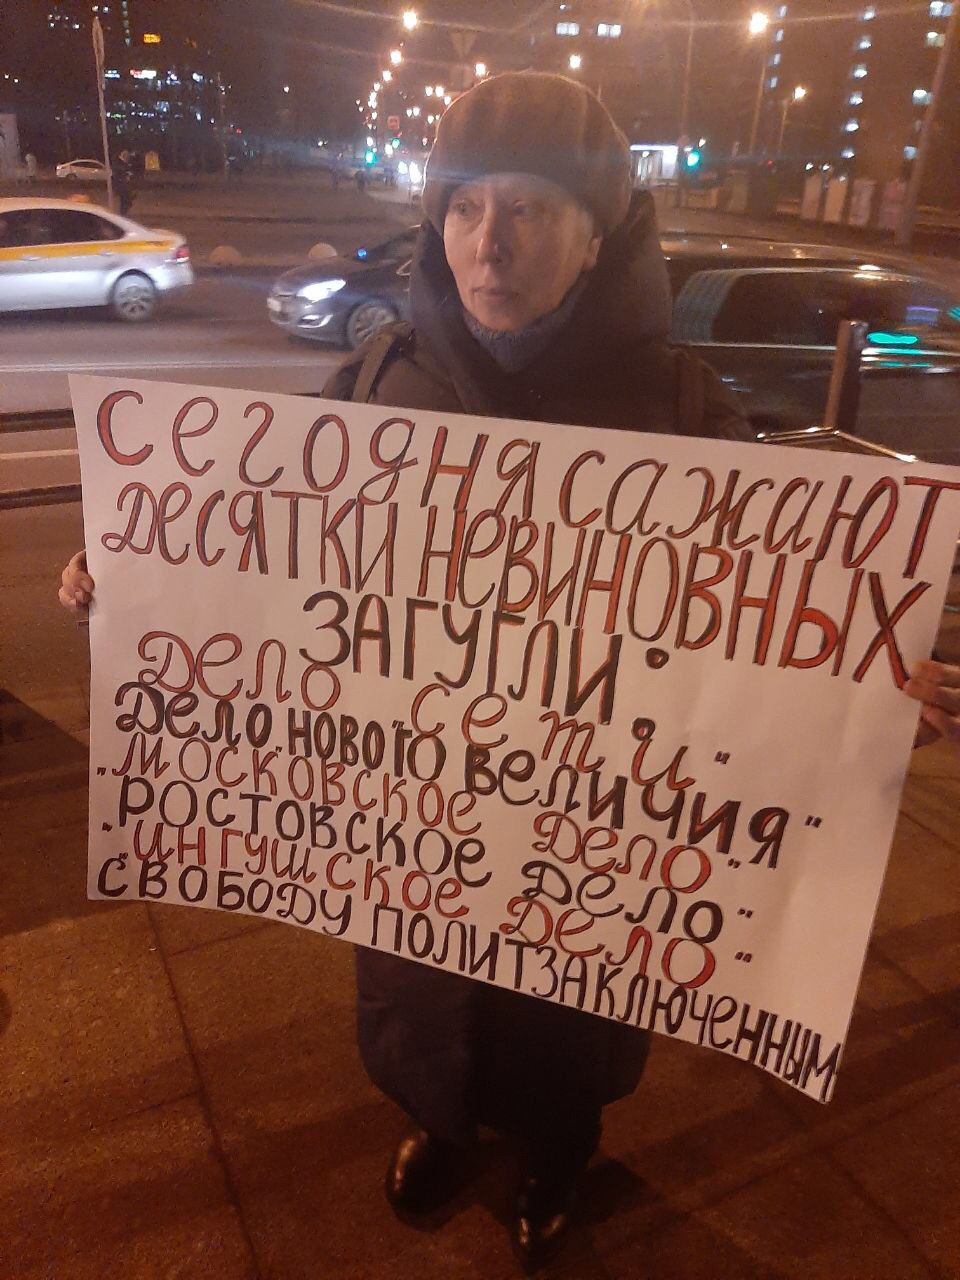 сегодня сажают
десятки невиновных
загугли:
дело сети"
дело "нового величия"
"московское дело"
ростовское дело"
"ингушское дело"
свободу политзаключенным